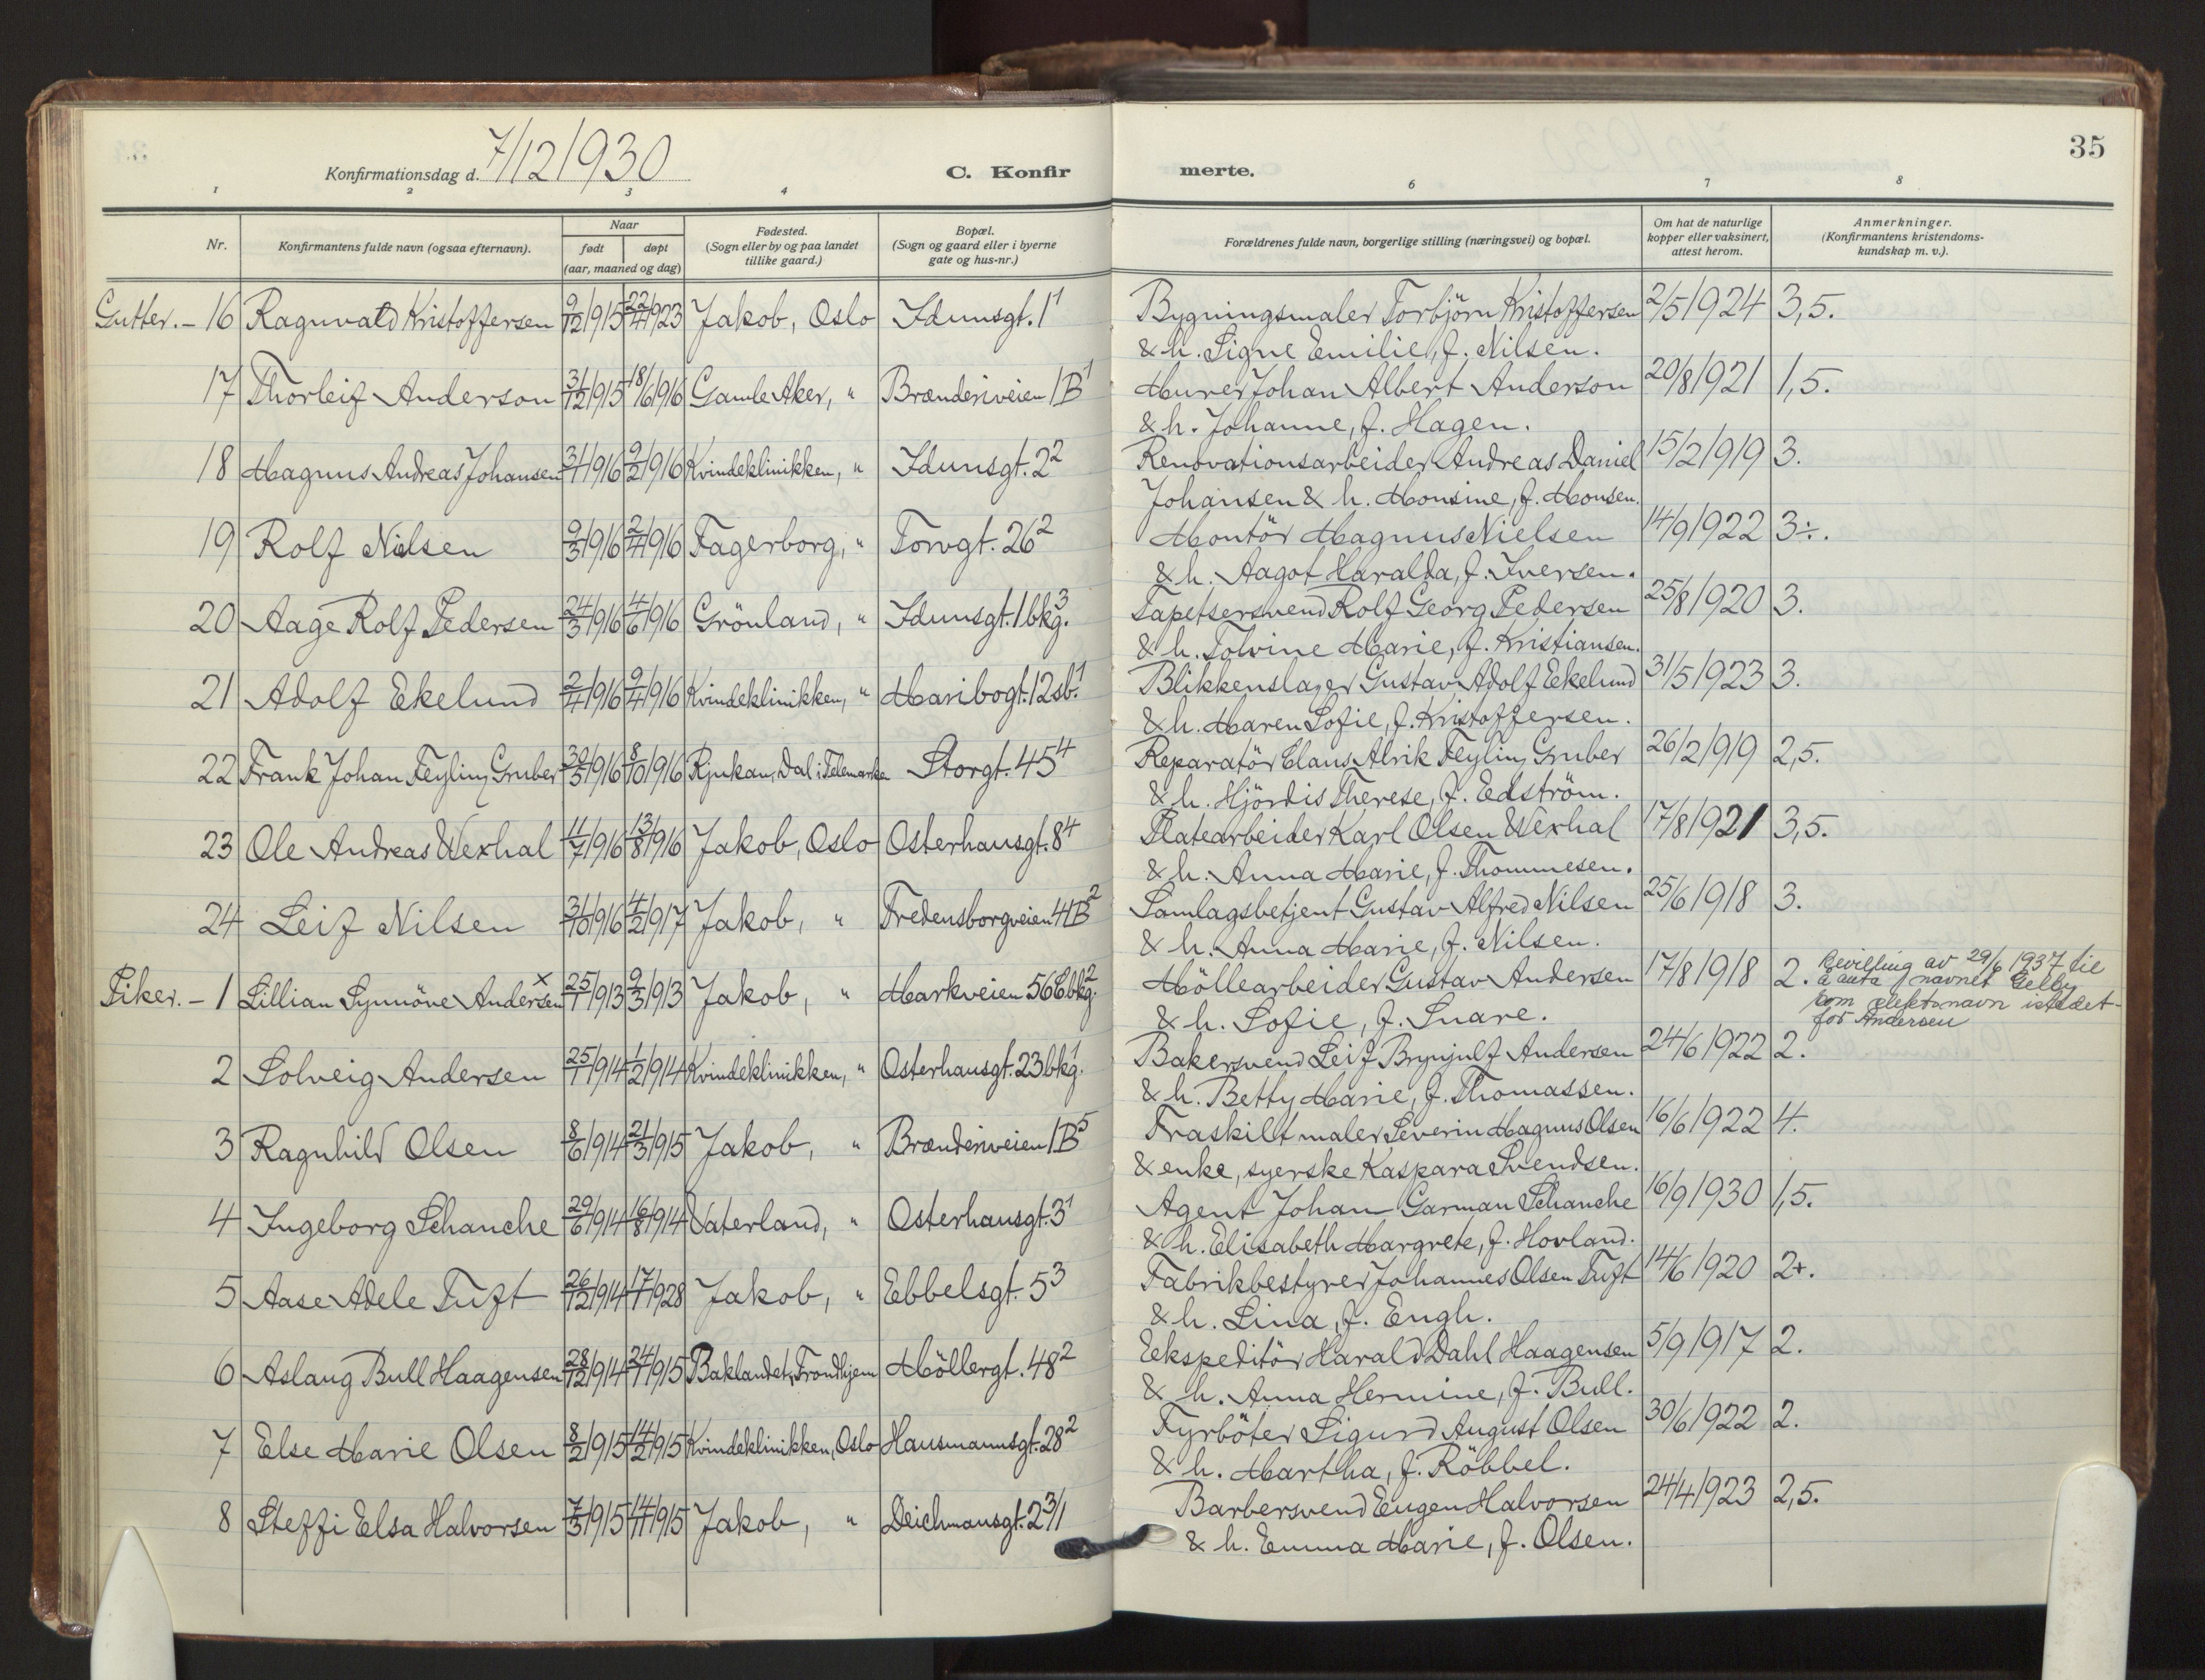 7/12 1930
Konfirmationsdag d.
C. Konfir
merte.
35
1 2 3 4 6 7 8
Nr.
Konfirmantens fulde navn (ogsaa efternavn).
Naar
født døpt
(aar, maaned og dag)
Fødested.
(Sogn eller by og paa landet
tillike gaard.)
Bopæl.
(Sogn og gaard eller i byerne
gate og hus-nr.)
Forældrenes fulde navn, borgerlige stilling (næringsvei) og bopæl.
Om hat de naturlige
kopper eller vaksinert,
attest herom.
Anmerkninger.
(Konfirmantens kristendoms-
kundskap m. v.).
Gutter. – 16 Ragnvald Kristoffersen 9/12 1915 22/4 1923 Jakob, Oslo Idunsgt. 1¹ Bygningsmaler Torbjörn Kristoffersen 2/5 1924 3,5.
& h. Signe Emilie, f. Nilsen.
17 Thorleif Anderson 31/12 1915 18/6 1916 Gamle Aker, " Brænderiveien 1B¹ Murer Johan Albert Anderson 20/8 1921 1,5.
& h. Johanne, f. Hagen.
18 Magnus Andreas Johansen 31/1 1916 9/2 1916 Kvindeklinikken, " Idunsgt. 2² Renovationsarbeider Andreas Daniel 15/2 1919 3.
Johansen & h. Monsine, f. Monsen.
19 Rolf Nielsen 9/3 1916 2/4 1916 Fagerborg, " Torvgt. 26² Montör Magnus Nielsen 14/9 1922 3÷.
& h. Aagot Haralda, f. Iversen.
20 Aage Rolf Pedersen 24/3 1916 4/6 1916 Grönland, " Idunsgt. 1 bkg.³ Tapetsersvend Rolf Georg Pedersen 25/8 1920 3.
& h. Tolvine Marie, f. Kristiansen.
21 Adolf Ekelund 2/4 1916 9/4 1916 Kvindeklinikken, " Maribogt. 12 sb.¹ Blikkenslager Gustav Adolf Ekelund 31/5 1923 3.
& h. Maren Sofie, f. Kristoffersen.
22 Frank Johan Feyling Gruber 30/5 1916 8/10 1916 Rjukan, Dal i Telemarke Storgt. 45⁴ Reparatör Claus Alrik Feyling Gruber 26/2 1919 2,5.
& h. Hjördis Therese, f. Edström.
23 Ole Andreas Wexhal 11/7 1916 13/8 1916 Jakob, Oslo Osterhausgt. 8⁴ Platearbeider Karl Olsen Wexhal 17/8 1921 3,5.
& h. Anna Marie, f. Thommesen.
24 Leif Nilsen 31/10 1916 4/2 1917 Jakob, " Fredensborgveien 41B² Samlagsbetjent Gustav Alfred Nilsen 25/6 1918 3.
& h. Anna Marie, f. Nilsen.
Piker. – 1 Lillian Synnöve Andersen x 25/1 1913 9/3 1913 Jakob, " Markveien 56C bkg.² Möllearbeider Gustav Andersen 17/8 1918 2. Bevilling av 29/6 1937 til
å anta navnet Gelby
som slektsnavn istedet-
for Andersen
& h. Sofie, f. Snare.
2 Solveig Andersen 25/1 1914 1/2 1914 Kvindeklinikken, " Osterhausgt. 23 bkg.¹ Bakersvend Leif Brynjulf Andersen 24/6 1922 2.
& h. Betty Marie, f. Thomassen.
3 Ragnhild Olsen 8/6 1914 21/3 1915 Jakob, " Brænderiveien 1B⁵ Fraskilt maler Severin Magnus Olsen 16/6 1922 4.
& enke, syerske Kaspara Svendsen.
4 Ingeborg Schanche 29/6 1914 16/8 1914 Vaterland, " Osterhausgt. 3¹ Agent Johan Garman Schanche 16/9 1930 1,5.
& h. Elisabeth Margrete, f. Hovland.
5 Aase Adele Tuft 26/12 1914 17/7 1928 Jakob, " Ebbelsgt. 5³ Fabrikbestyrer Johannes Olsen Tuft 14/6 1920 2+.
& h. Lina, f. Engh.
6 Aslaug Bull Haagensen 28/12 1914 24/7 1915 Baklandet, Trondhjem Möllergt. 48² Ekspeditör Harald Dahl Haagensen 5/9 1917 2.
& h. Anna Hermine, f. Bull.
7 Else Marie Olsen 8/2 1915 14/2 1915 Kvindeklinikken, Oslo Hausmannsgt. 28² Fyrböter Sigurd August Olsen 30/6 1922 2.
& h. Martha, f. Röbbel.
8 Steffi Elsa Halvorsen 7/3 1915 14/11 1915 Jakob, " Deichmansgt. 2³/1 Barbersvend Eugen Halvorsen 24/4 1923 2,5.
& h. Emma Marie, f. Olsen.